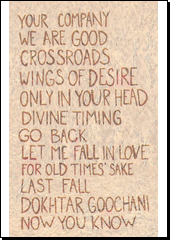 YOUR COMPANY
WE ARE GOOD
CROSSROADS
WINGS OF DESIRE
ONLY IN YOUR HEAD
DIVINE TIMING
GO BACK
LET ME FALL IN LOVE
FOR OLD TIMES' SAKE
LAST FALL
DOKHTAR GOOCHANI
NOW YOU KNOW